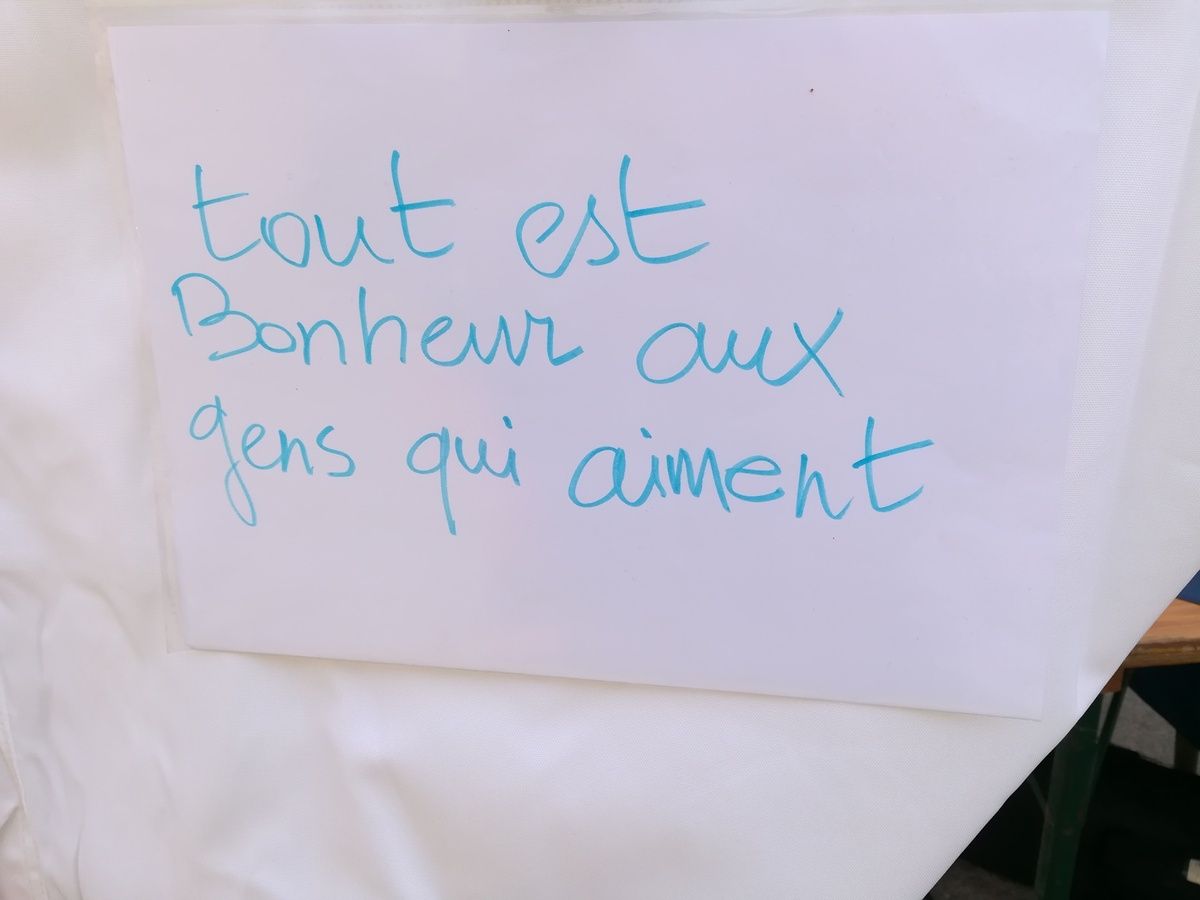 tout est
Bonheur aux
gens qui aiment